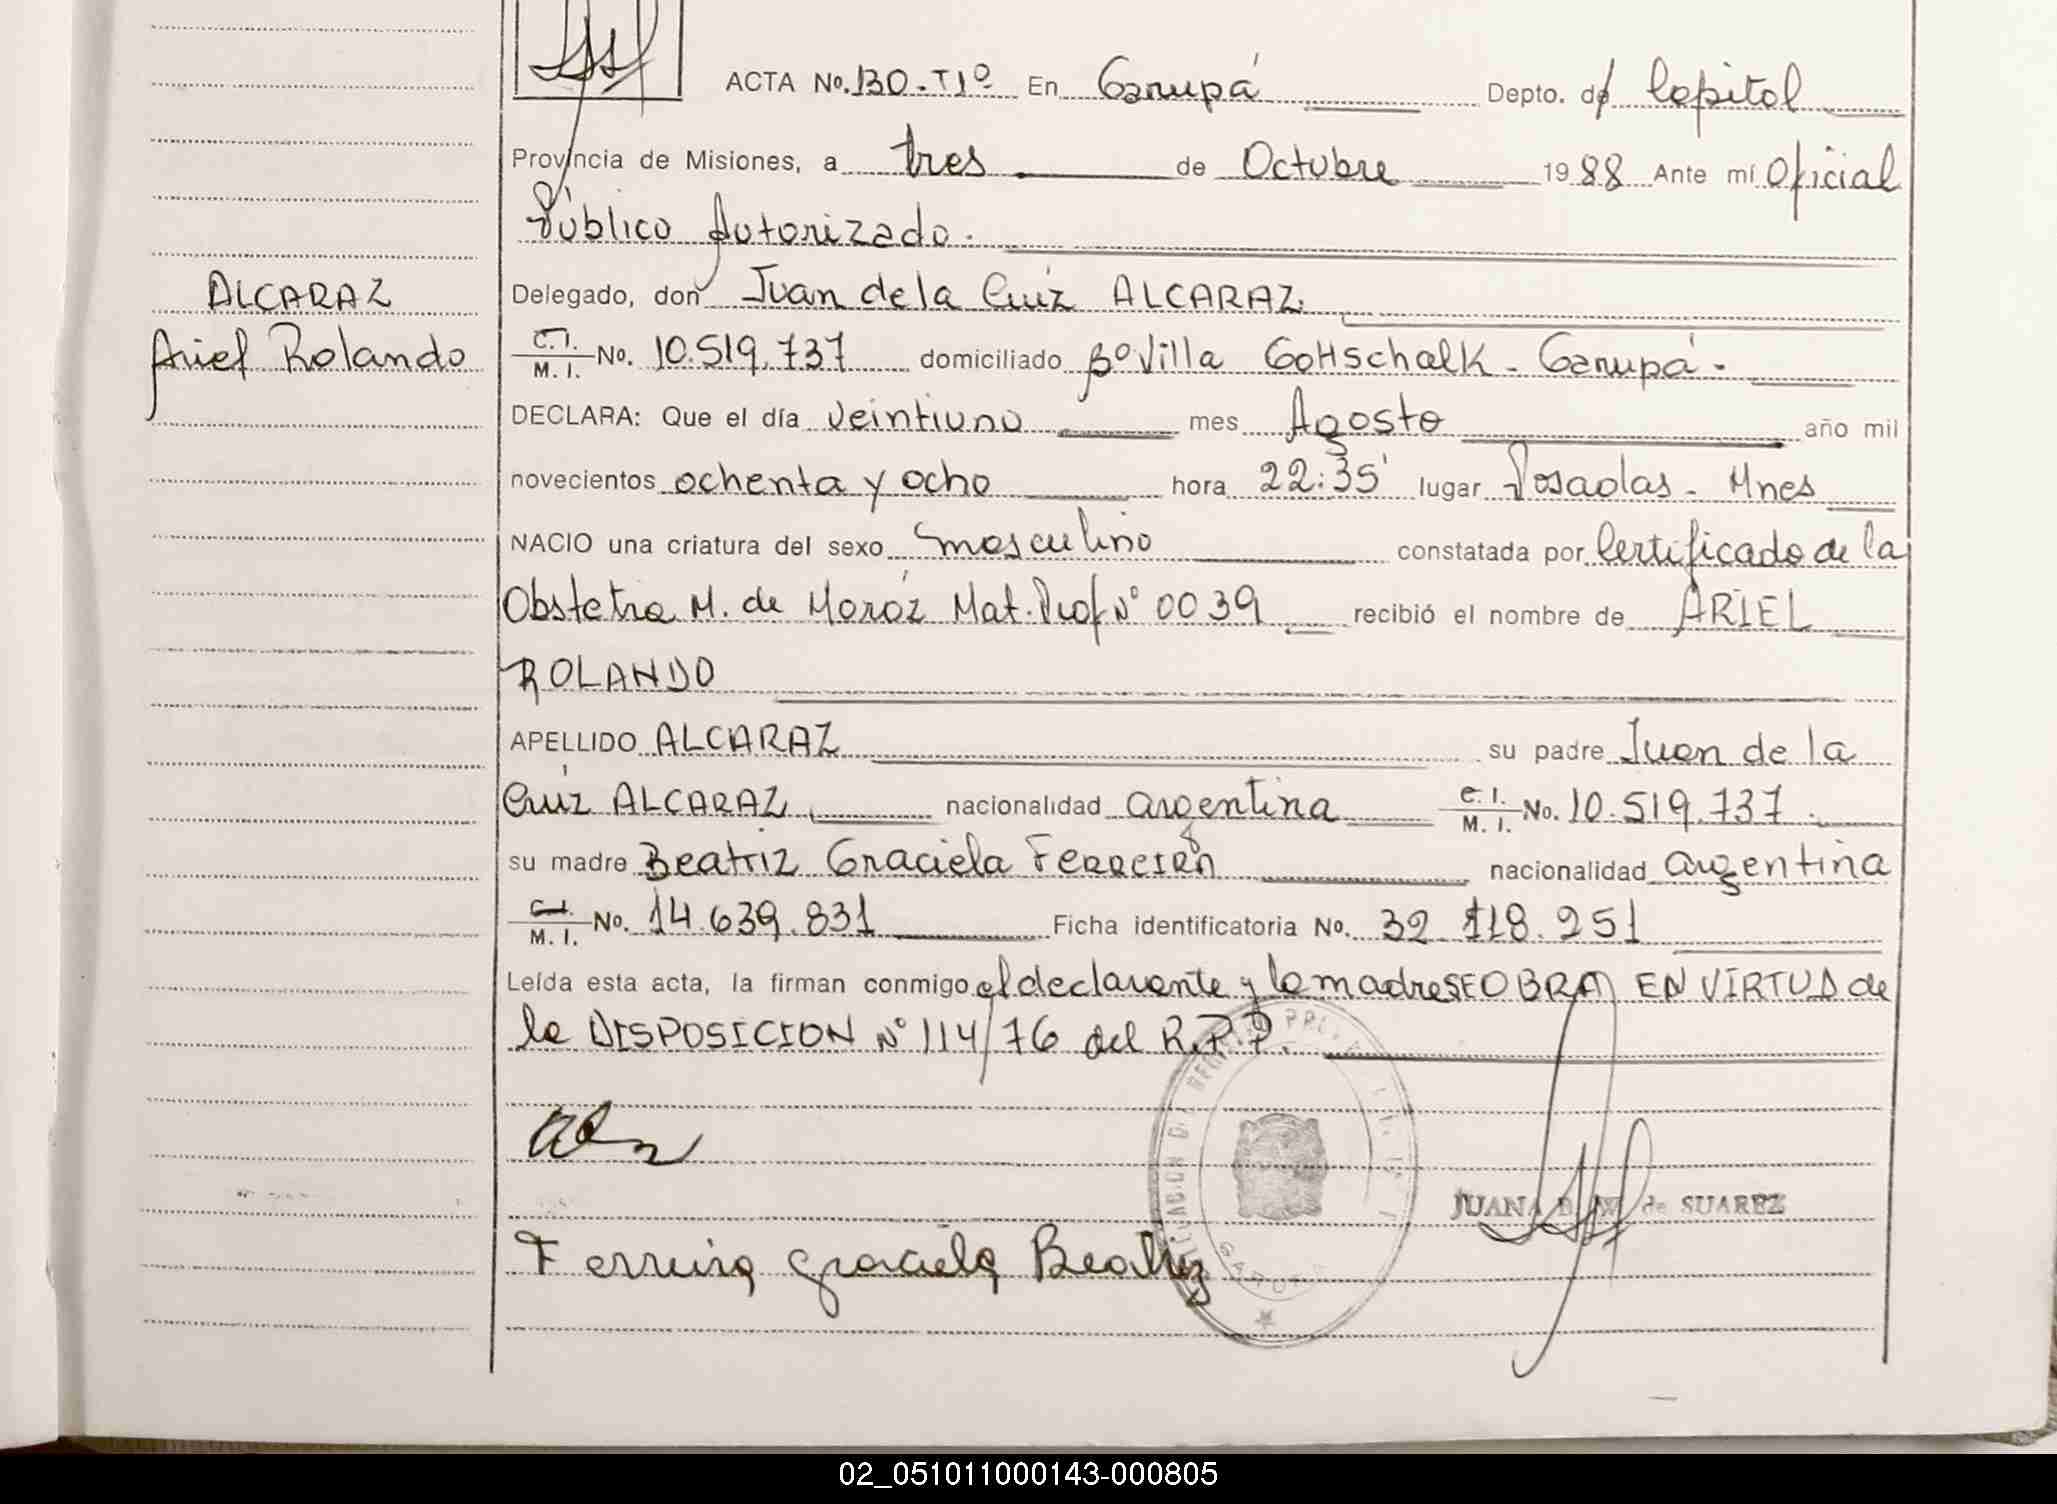 ACTA No. 130-T1º En Garupá Depto. de Capital
Provincia de Misiones, a tres de Octubre 1988 Ante mí Oficial
Público Autorizado.
Delegado, don Juan de la Cruz ALCARAZ
ALCARAZ
Ariel Rolando
C.I. M.I. No. 10.519.737 domiciliado Bº Villa Gottschalk - Garupá -
DECLARA: Que el día veintiuno mes Agosto año mil
novecientos ochenta y ocho hora 22:35' lugar Posadas - Mnes
NACIO una criatura del sexo masculino constatada por Certificado de la
Obstetra M. de Moróz Mat. Prof Nº 0039 recibió el nombre de ARIEL
ROLANDO
APELLIDO ALCARAZ su padre Juan de la
Cruz ALCARAZ, nacionalidad argentina C.I. M.I. No. 10.519.737.
su madre Beatriz Graciela Ferreira nacionalidad argentina
C.I. M.I. No. 14.639.831 Ficha identificatoria No. 32 118.251
Leída esta acta, la firman conmigo el declarante y la madre SE OBRA EN VIRTUD de
la DISPOSICION Nº 114/76 del R.P.P.
JUANA de SUAREZ
Ferreira Graciela Beatriz
GARUPA
02_051011000143-000805